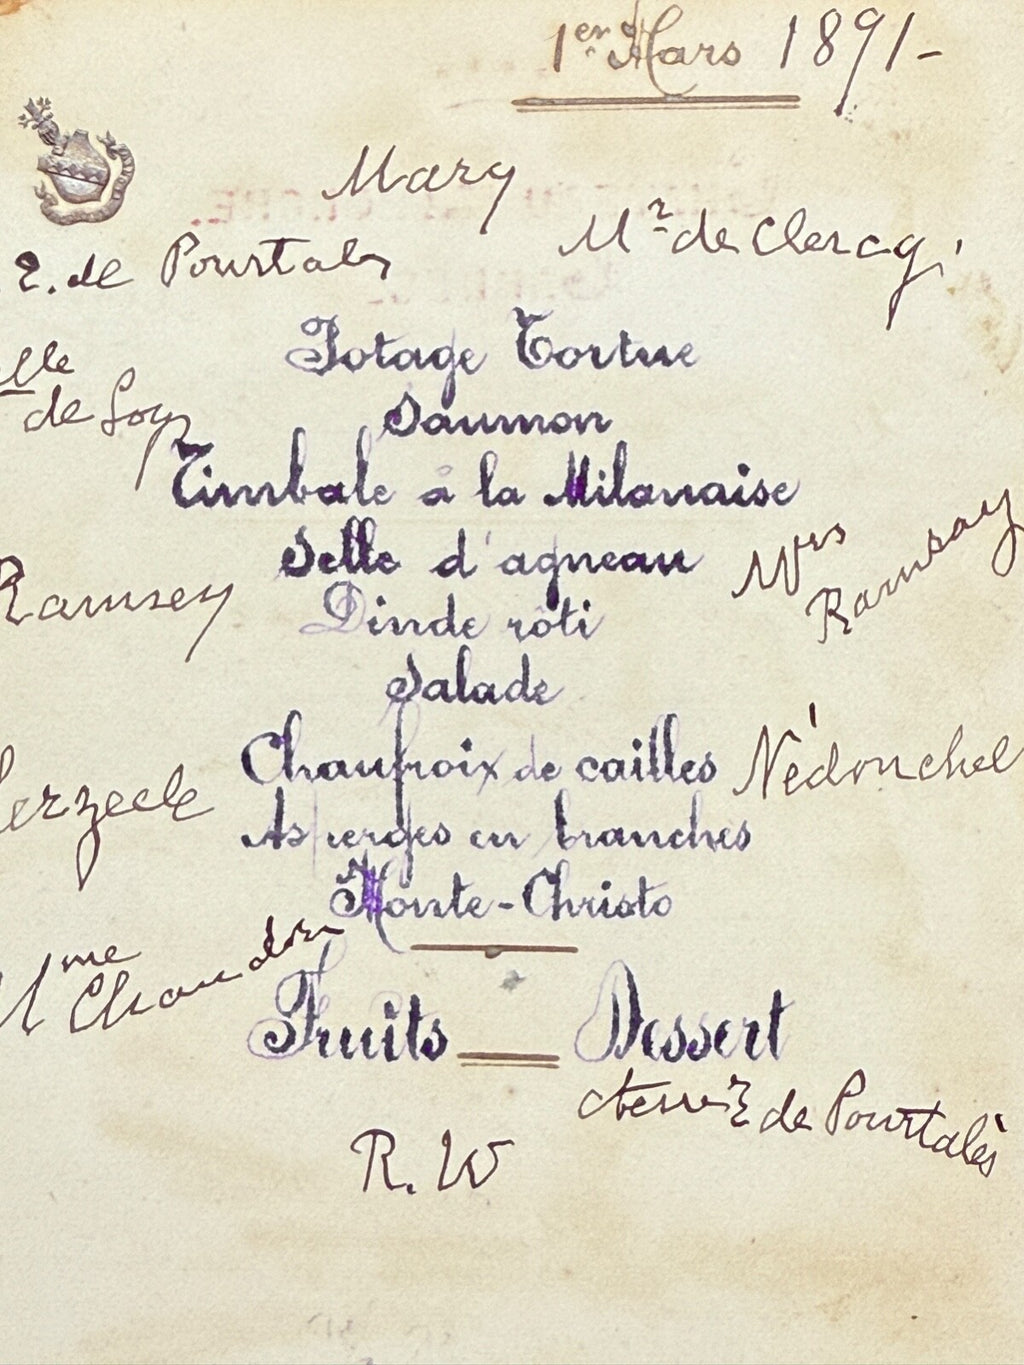 1er Mars 1891-
Mary
Mr de Clercq.
E. de Pourtalès
lle
de Loys
Potage Tortue
Saumon
Timbale à la Milanaise
Selle d'agneau
Mrs
Ramsay
Ramsey
Dinde rôti
Salade
Chaufroix de cailles
Nédonchel
Asperges en branches
Monte-Christo
me
Chandon
Fruits Dessert
de Pourtalès
R. W